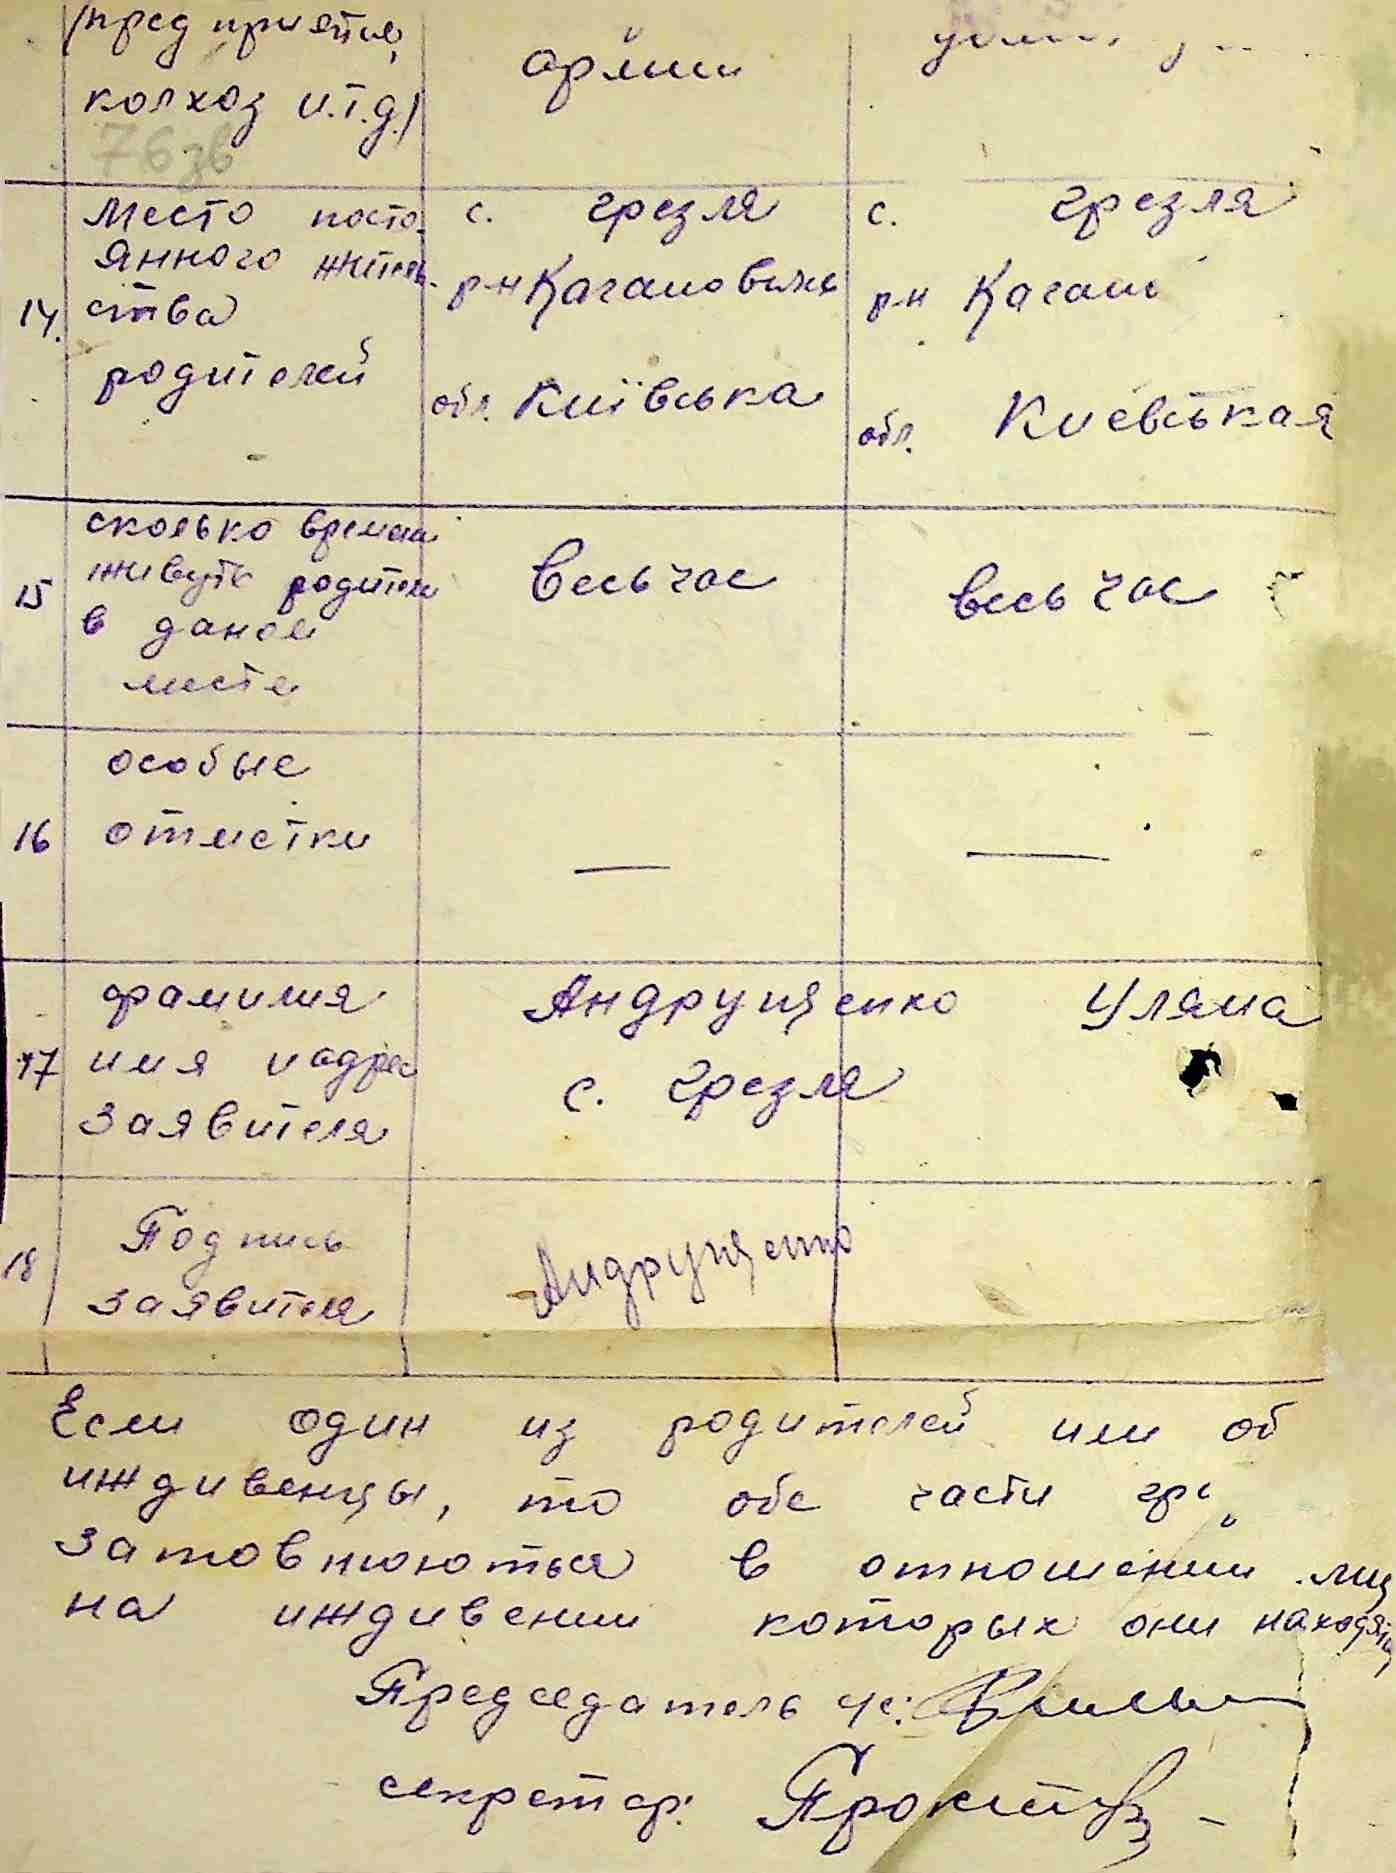 /предприятия,
колхоз и.т.д./
армии
76зв
14.
Место посто-
янного житель-
ства
родителей
с. Грезля
р-н Кагановичь
обл. Київська
с. Грезля
р-н Кагано
обл. Киевськая
15
сколько времени
живуть родители
в даном
месте
весь час
весь час
16
особые
отметки
—
—
17
фамилия
имя и адрес
заявителя
Андрущенко Уляна
с. Грезля
18
Подпись
заявителя
Андрущенко
Если один из родителей или об
иждивенцы, то обе части гр
затовнюються в отношении лиц
на иждивении которых они находятся
Председатель с/с:
секретар: